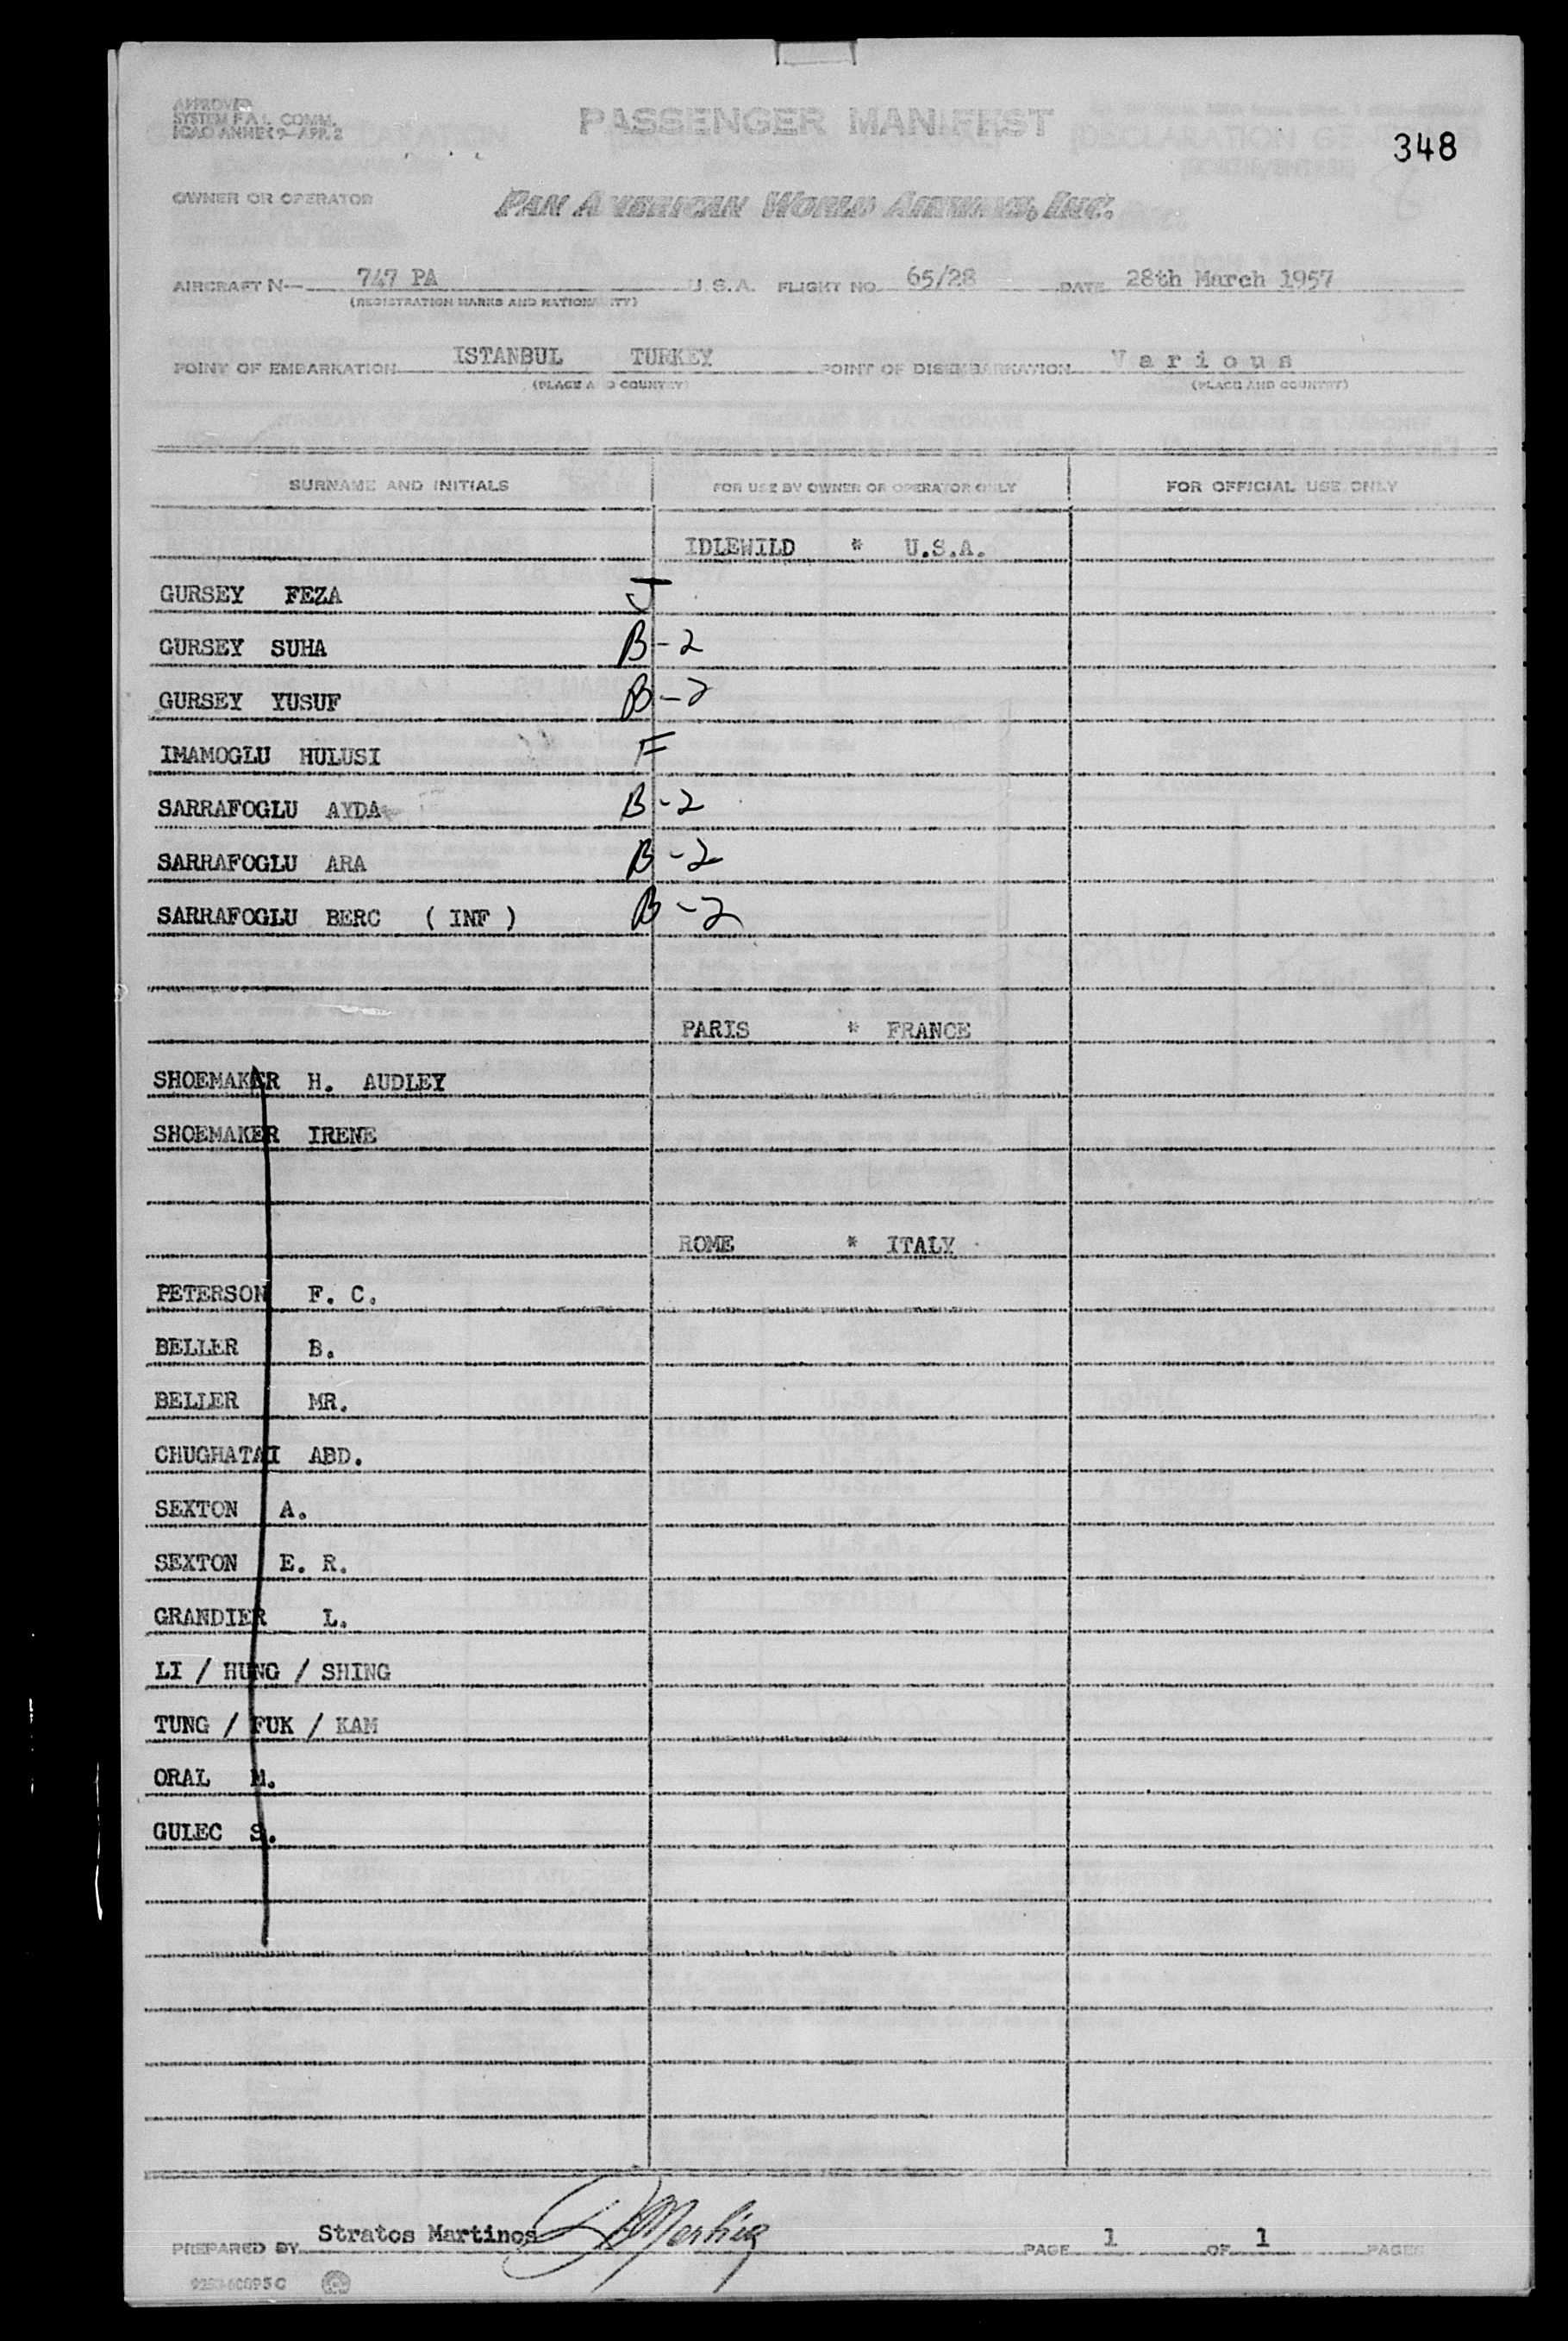 APPROVED
SYSTEM F.A.L. COMM.
ICAO ANNEX 9-APP. 2
PASSENGER MANIFEST
348
OWNER OR OPERATOR PAN AMERICAN WORLD AIRWAYS, INC.
AIRCRAFT N— 747 PA U.S.A. FLIGHT NO. 65/28 DATE 28th March 1957
(REGISTRATION MARKS AND NATIONALITY)
POINT OF EMBARKATION ISTANBUL TURKEY POINT OF DISEMBARKATION Various
(PLACE AND COUNTRY) (PLACE AND COUNTRY)
SURNAME AND INITIALS FOR USE BY OWNER OR OPERATOR ONLY FOR OFFICIAL USE ONLY
IDLEWILD * U.S.A.
GURSEY FEZA J
GURSEY SUHA B-2
GURSEY YUSUF B-2
IMAMOGLU HULUSI F
SARRAFOGLU AYDA B-2
SARRAFOGLU ARA B-2
SARRAFOGLU BERC ( INF ) B-2
PARIS * FRANCE
SHOEMAKER H. AUDLEY
SHOEMAKER IRENE
ROME * ITALY
PETERSON F. C.
BELLER B.
BELLER MR.
CHUGHATAI ABD.
SEXTON A.
SEXTON E. R.
GRANDIER L.
LI / HUNG / SHING
TUNG / FUK / KAM
ORAL M.
GULEC S.
PREPARED BY Stratos Martinos PAGE 1 OF 1 PAGES